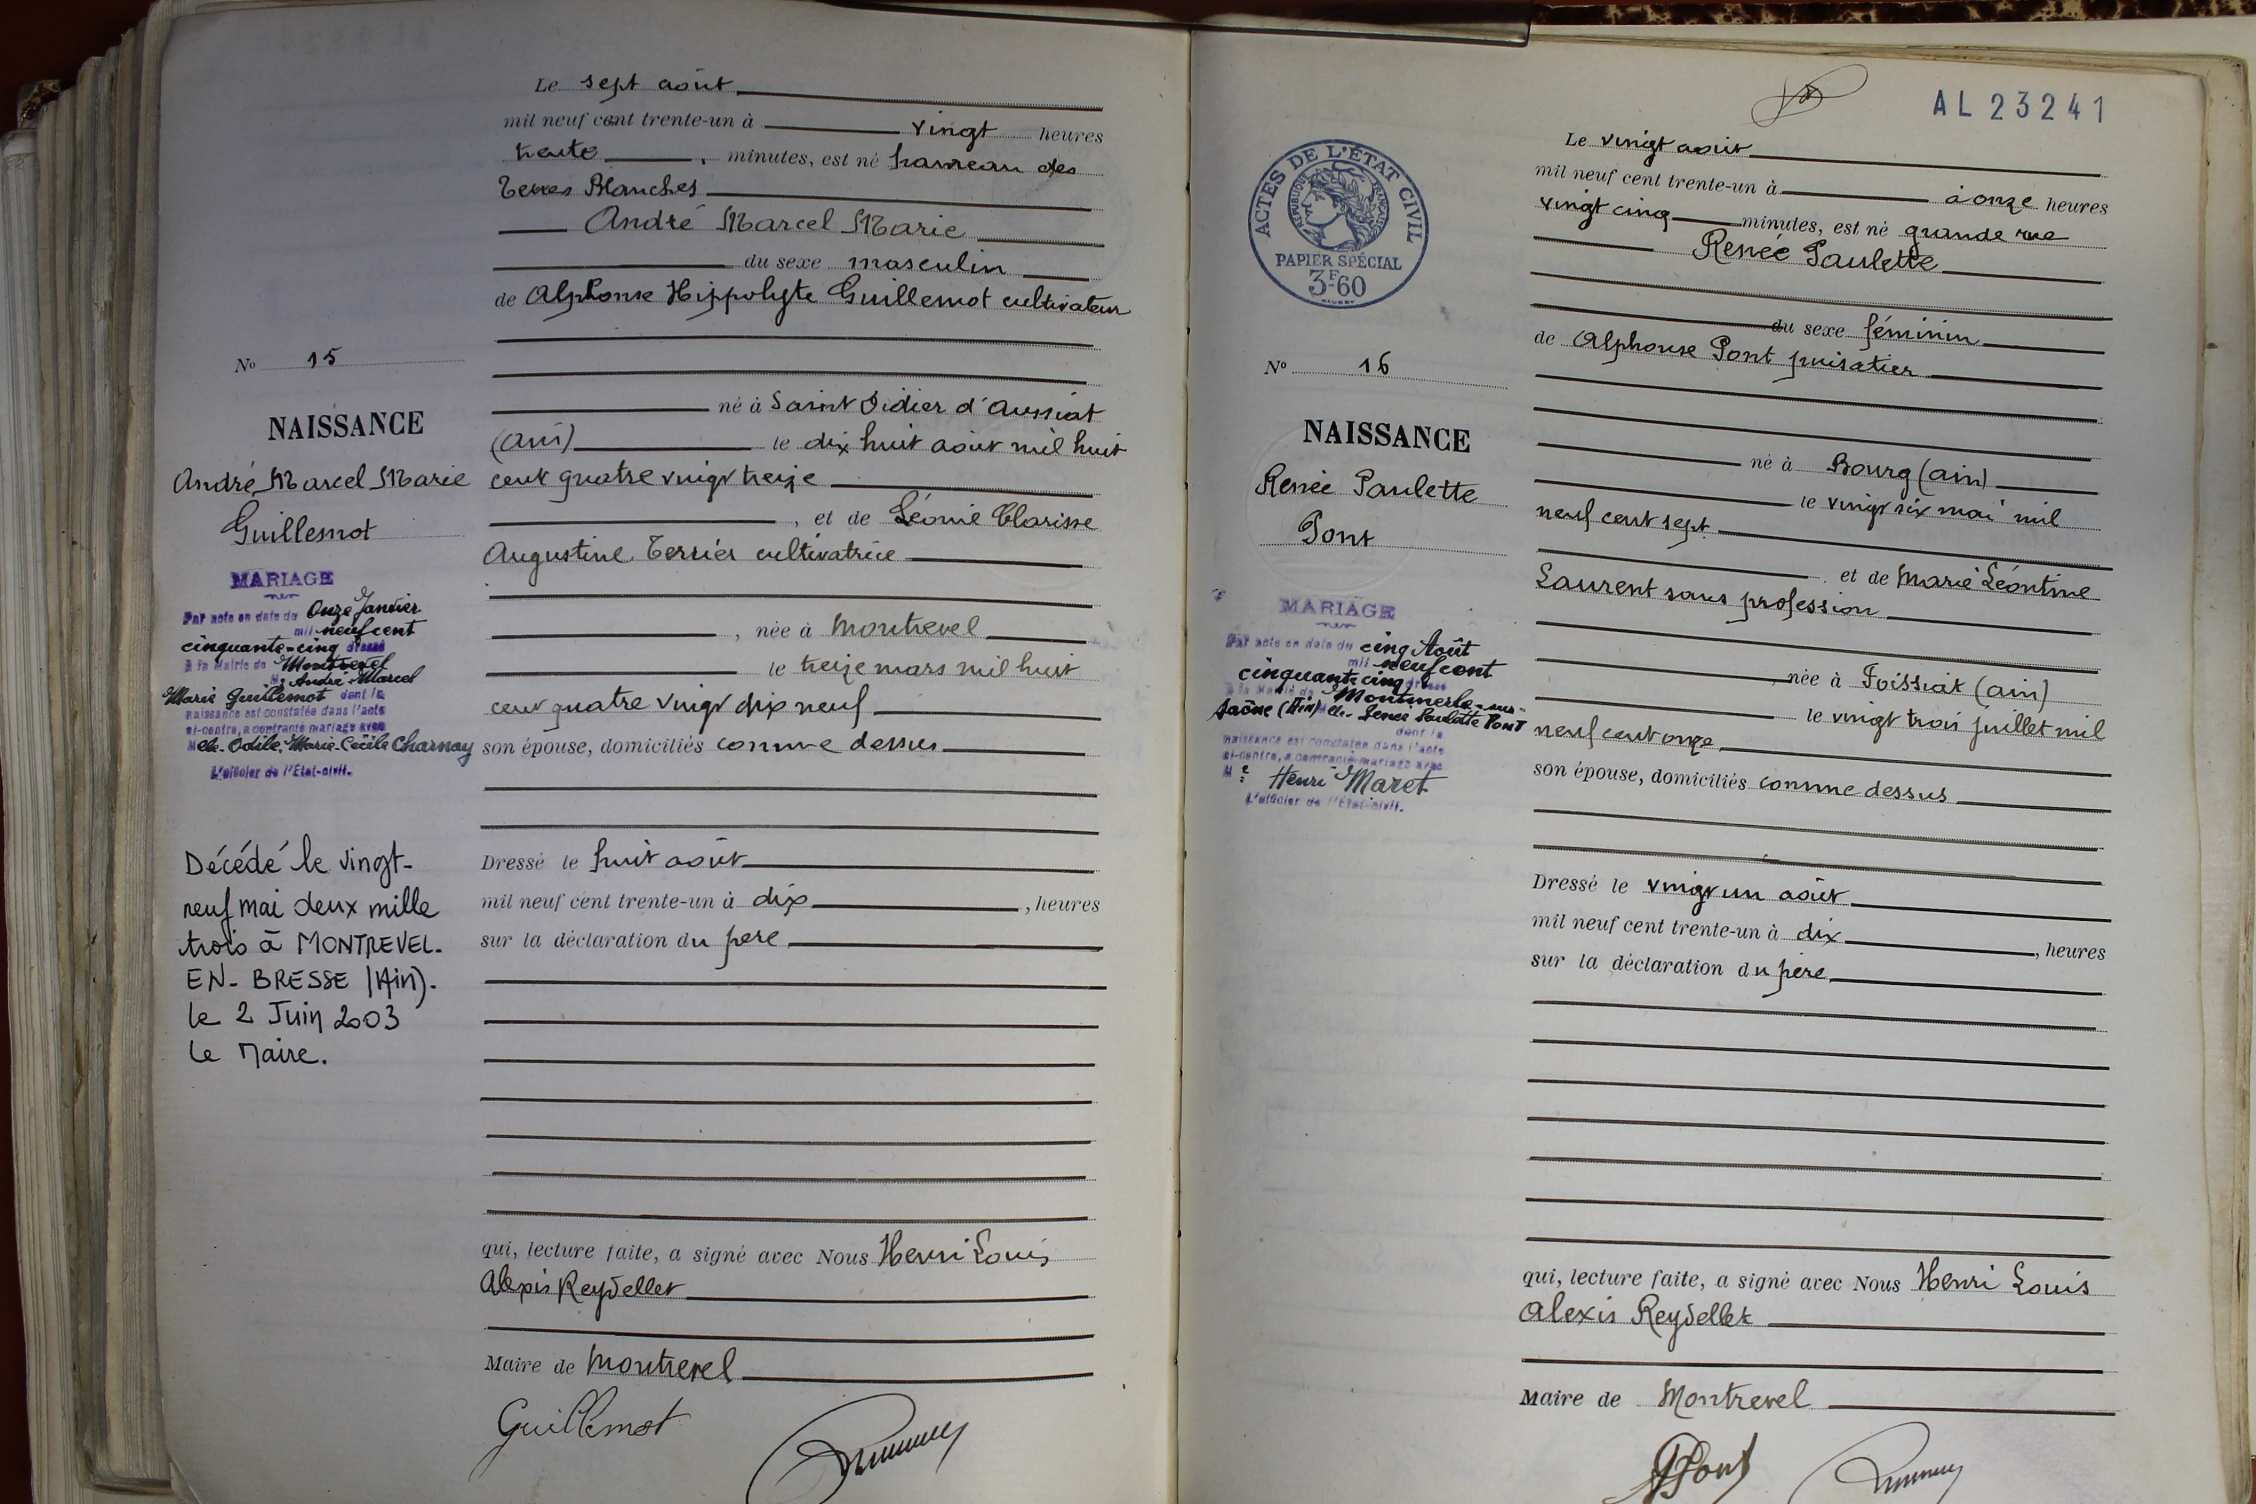 Le sept août
mil neuf cent trente-un à vingt heures
trente, minutes, est né hameau des
Terres Blanches
André Marcel Marie
du sexe masculin
de Alphonse Hippolyte Guillemot cultivateur
né à Saint Didier d'Aussiat
(Ain) le dix huit août mil huit
cent quatre vingt treize
, et de Léonie Clarisse
Augustine Terrier cultivatrice
, née à Montrevel
le treize mars mil huit
cent quatre vingt dix neuf
son épouse, domiciliés comme dessus
Dressé le huit août
mil neuf cent trente-un à dix, heures
sur la déclaration du père
qui, lecture faite, a signé avec Nous Henri Louis
Alexis Reydellet
Maire de Montrevel
Guillemot
No 15
NAISSANCE
André Marcel Marie
Guillemot
MARIAGE
Par acte en date du Onze Janvier
mil neuf cent
cinquante-cinq dressé
à la Mairie de Montrevel
M. André-Marcel
Marie Guillemot dont la
naissance est constatée dans l'acte
ci-contre, a contracté mariage avec
Melle Odile, Marie-Cécile Charnay
L'officier de l'Etat-civil.
Décédé le vingt-
neuf mai deux mille
trois à MONTREVEL-
EN-BRESSE (Ain).
le 2 Juin 2003
Le Maire.
AL 23241
ACTES DE L'ÉTAT CIVIL
RÉPUBLIQUE FRANÇAISE
PAPIER SPÉCIAL
3F60
Le vingt août
mil neuf cent trente-un à à onze heures
vingt cinq minutes, est né grande rue
Renée Paulette
du sexe féminin
de Alphonse Pont puisatier
né à Bourg (Ain)
le vingt six mai mil
neuf cent sept
et de Marie Léontine
Laurent sans profession
, née à Foissiat (Ain)
le vingt trois juillet mil
neuf cent onze
son épouse, domiciliés comme dessus
Dressé le vingt un août
mil neuf cent trente-un à dix, heures
sur la déclaration du père
qui, lecture faite, a signé avec Nous Henri Louis
Alexis Reydellet
Maire de Montrevel
Pont
No 16
NAISSANCE
Renée Paulette
Pont
MARIAGE
Par acte en date du cinq Août
mil neuf cent
cinquante cinq dressé
à la Mairie de Montmerle-sur-
Saône (Ain) Melle Renée Paulette Pont
dont la
naissance est constatée dans l'acte
ci-contre, a contracté mariage avec
M. Henri Maret
L'officier de l'Etat-civil.